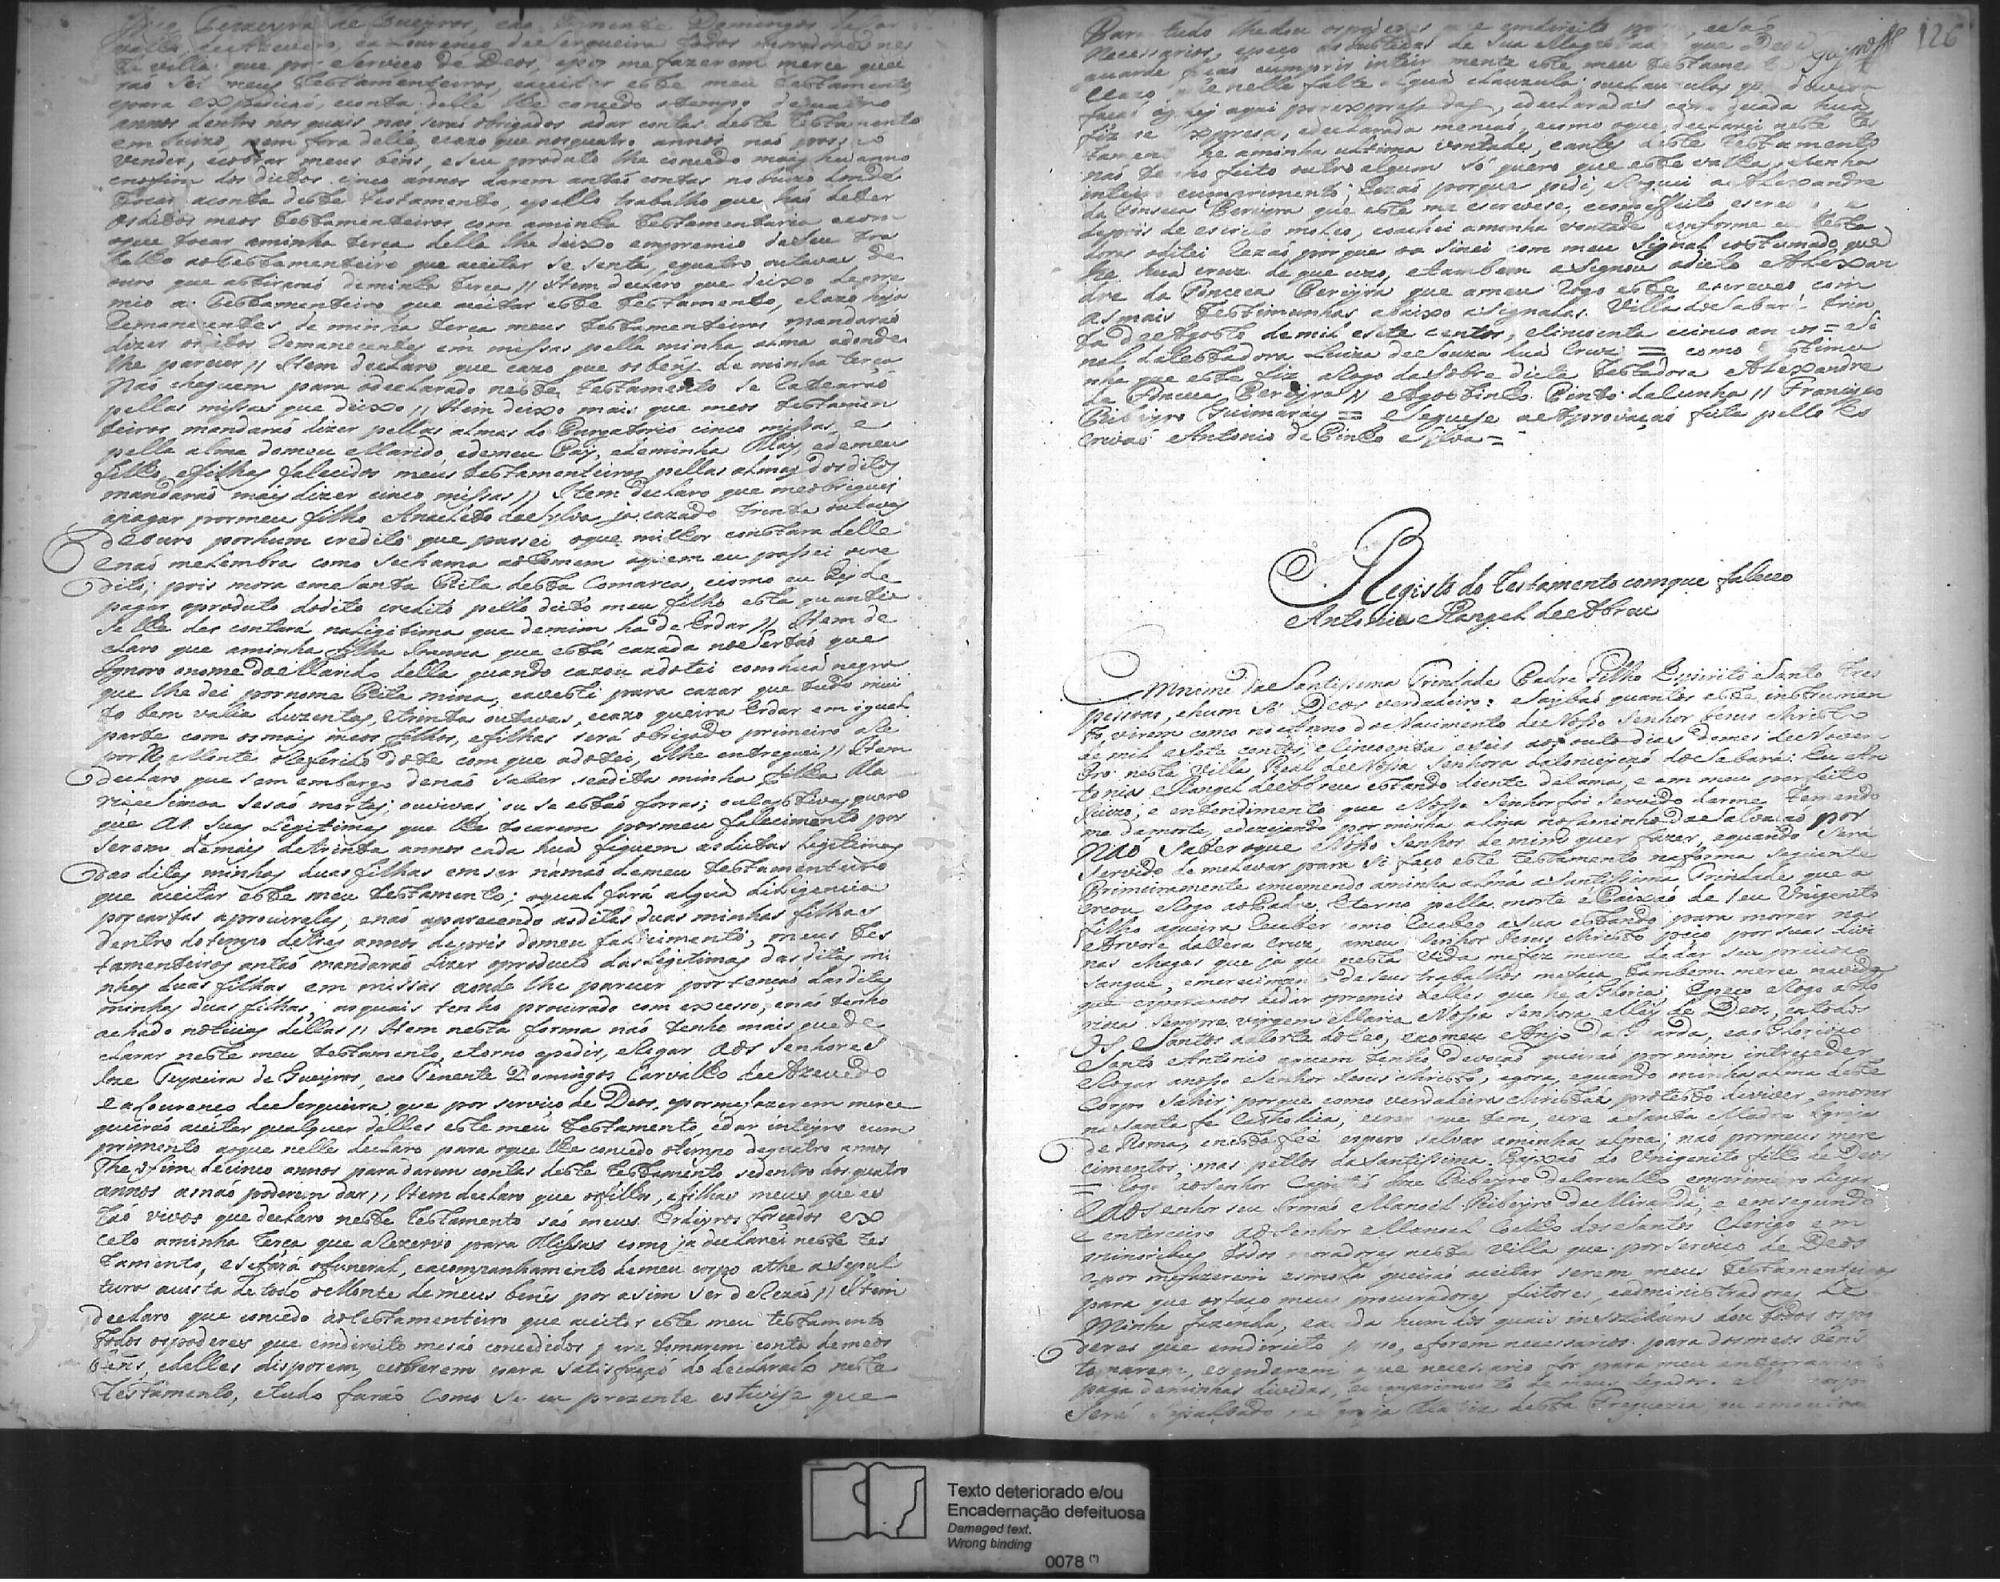 Joze Teixeyra de Gueyros, eao Tenente Domingos de Car
valho, de Azevedo, ea Lourenço de Serqueira todos moradores nes
ta villa que por serviço de Deos, epor me fazerem merce quei
raó ser meus testamenteiros, eaceitar este meu testamento
epara expediçaó, econta delle lhe concedo otempo de quatro
annos dentro nos quais naó seraó obrigados adar contas deste testamento
em Juizo, nem fora delle, ecazo que nos quatro annos naó pos
vender, ecobrar meus béns, eseu produto lhe concedo mais hú anno
enofim dos dittos cinco annos darem antaó contas no Juizo donde
tocar aconta deste testamento, epello trabalho que haó deter
osditos meos testamenteiros com aminha testamentaria ecom
oque tocar aminha terça della lhe deixo empremio deseu tra
balho aotestamenteiro que aceitar se senta, equatro outavas de
ouro que astirará deminha terça // Item declaro que deixo de pre
mio a testamenteiro que aceitar este testamento, elazo haja
Remanecentes de minha terça meus testamenteiros mandaraó
dizer osditos Remanecentes em missas pella minha alma adonde
lhe parecer // Item declaro que cazo que osbéns de minha terça
Naó cheguem para odeclarado neste testamento se Ratearaó
pellas missas que deixo // Item deixo mais que meos testamen
teiros mandaraó dizer pellas almas do Purgatorio cinco missas e
pella alma domeu Marido, edemeu Pay, edeminha May, edemeu
filho, efilhas falecidos meus testamenteiros pellas almas dosditos
mandaraó mais dizer cinco missas // Item declaro que meobriguei
apagar pormeu filho Anacleto da Sylva, ja cazado trinta outavas
deouro porhum credito que passei oque milhor constara delle
enaó melembra como sechama aohomem aquem eu passei ocre
dito; pois mora emSanta Rita desta Comarca, ecomo eu Hej de
pagar oproduto dodito credito pello ditto meu filho esta quantia
Se lhe des contará naLegitima que demim ha deErdar // Item de
claro que aminha filha Joanna que está cazada noSertaó que
Ignoro onome doMarido della quando cazou adotei comhua negra
que lhe dei pornome Rita mina, eavesti para cazar que tudo mui
to bem valia duzentas, etrinta outavas, ecazo queira Erdar em igual
parte com osmais meos filhos, efilhas será obrigado primeiro a Re
por No Monte oReferido dote com que adotei, elhe entreguei // Item
declaro que sem embargo denaó saber seadita minha filha Ma
ria eSimoa sesaó mortas; ouvivas; ou se estaó forras; ou cativas quero
que As suas Legitimas que lhe tocarem pormeu falecimento por
Serem demais detrinta annos cada huá fiquem asdittas Legitimas
das ditas minhas duas filhas em ser namaó demeu testamenteiro
que aceitar este meu testamento; oqual fará algua diligencia
porcartas aprocurelas, enaó aparecendo asditas duas minhas filhas
dentro dotempo detres annos depois domeu falecimento, meus tes
tamenteiros antaó mandaraó dizer oproducto das Legitimas das ditas mi
nhas duas filhas em missas aonde lhe parecer por tençaó das ditas
minhas duas filhas; asquais tenho procurado com excesso, enaó tenho
achado noticias dellas // Item nesta forma naó tenho mais que de
clarar neste meu testamento, etorno apedir, eRogar aos Senhores
Joze Teyxeira de Gueyros, eao Tenente Domingos Carvalho de Azevedo
e a Lourenço de Serqueira que por serviço de Deos, epormefazerem merce
queiraó aceitar qualquer delles este meu testamento edar inteyro cum
primento aoque nelle declaro para oque lhe concedo otempo dequatro annos
the ofim decinco annos para darem contas deste testamento sedentro dos quatro
annos asnaó poderem dar // Item declaro que osfilhos, efilhas meus que es
taó vivos que declaro neste testamento saó meus Erdeyros forçados ex
ceto aminha terça que aRezervo para Missas como ja declarei neste tes
tamento, esefará ofuneral, eacompanhamento demeu corpo athe a sepul
tura acusta de todo oMonte demeus béns por asim ser de Rezaó // Item
declaro que concedo aotestamenteiro que aceitar este meu testamento
todos ospoderes que emdireito mesaó concedidos para tomarem conta demeos
béns, edelles disporem, ecobrarem para satisfaçaó do declarado neste
testamento, etudo faraó como se eu prezente estivesse que
Para tudo lhedou ospoderes que emdireito posso, esaó
Necessarios, epeço as Justiças de Sua Magestade que Deos
guarde façaó cumprir inteiramente este meu testamento
126
Cazo que nelle falte algua clauzula; ouclauzulas que
faço as hej aqui porexpressadas, edeclaradas como decada hua
fizesse expressa, edeclarada mençaó, ecomo oque declarei neste tes
tamento he aminha ultima vontade, eantes deste testamento
naó tenho feito outro algum Só quero que este valha, etenha
inteiro cumprimento; Rezaó porque pedi, eRoguei a Alexandre
da Fonseca Pereyra que este me escrevese, ecomeffeito escreveo, e
depois de escrito moleo, eoachei aminha vontade conforme eu testa
dora oditei Rezaó porque oa sinei com meu Signal costumado que
he huá cruz de que uzo, etambem asignou odito Alexan
dre da Fonceca Pereyra que ameu Rogo este escreveo com
As mais testimunhas abaixo asignadas. Villa do Sabará trin
ta de Agosto demil esete centos, eSincoenta ecinco annos = Si
nal da testadora Luiza de Souza huá Cruz = como testimu
nha que este fiz aRogo daSobre dita testadora Alexandre
da Fonceca Pereyra // Agostinho Pinto da Cunha // Francisco
Ribeyro Guimaráes = e segue se aAprovaçaó feita pello Es
crivaó Antonio de Pinho eSylva =
Registo do testamento comque faleceo
Antonia Rangel deAbreu
Emnome da Santissima Trindade Padre Filho Espirito Santo tres
pessoas, ehum só Deos verdadeiro: Saybaó quantos este instrumen
to virem como noAnno doNacimento deNosso Senhor Jesus Christo
de mil eSete centos eSincoenta eseis aos outo dias domes deNovem
bro nesta Villa Real deNossa Senhora daConceiçaó do Sabará: Eu An
tonia Rangel deAbreu estando doente de cama, e em meu perfeito
Juizo, e entendimento que Nosso Senhor foi servido darme temendo
me damorte, edezejando por minha alma nocaminho da Salvaçaó por
Naó saber oque Nosso Senhor de mim quer fazer, equando será
servido de melevar para si faço este testamento naforma seguinte
Primeiramente emcomendo aminha alma aSantissima Trindade que a
creou eRogo aoPadre Eterno pella morte ePaixaó de seu Unigenito
filho aqueira Receber como Recebeo asua estando para morrer na
Arvore daVera Cruz, ameu Senhor Jesus Christo peço por suas divi
nas chagas que ja que nesta vida mefez merce dedar seu preciozo
Sangue, emerecimento deseus trabalhos mefaça tambem merce navida
que esperamos dedar opremio delles que he aGloria; Epeço eRogo aGlo
rioza Sempre virgem Maria Nossa Senhora Máy de Deos, eatodos
Os Santos daCorte doCeo, eaomeu Anjo da Guarda, eao Gloriozo
Santo Antonio aquem tenho devoçaó queiraó por mim interceder
eRogar anosso Senhor Jesus Christo, agora, equando minhaalma deste
Corpo Sahir; porque como verdadeira christaá protesto deviver, emorrer
na Santa fé Catholica, ecrer oque tem, ecre a Santa Madre Igreja
de Roma, enesta fee espero salvar aminha alma; naó pormeus mere
cimentos, mas pellos daSantissima Payxaó do Unigenito filho de Deos
= Rogo aoSenhor Capitaó Joze Ribeyro deCarvalho emprimeiro lugar
eaoSenhor seu Irmaó Manoel Ribeyro de Miranda, e emsegundo
e emterceiro aoSenhor Manoel Coelho dosSantos clerigo em
minoribus todos moradores nesta Villa que porserviço de Deos
epor mefazerem esmola queiraó aceitar serem meus testamenteiros
para que osfaço meus procuradores feitores, eadministradores de
Minha fazenda, ecada hum dos quais insolidum dou todos ospo
deres que emdireito posso, eforem necessarios para dosmeos béns
tomarem, evenderem oque necessario for para meu enterramento
paga deminhas dividas, ecumprimento de meus legados.
Será Sepultado na Igreja Matriz desta Freguezia
Texto deteriorado e/ou
Encadernação defeituosa
Damaged text.
Wrong binding
0078 (*)